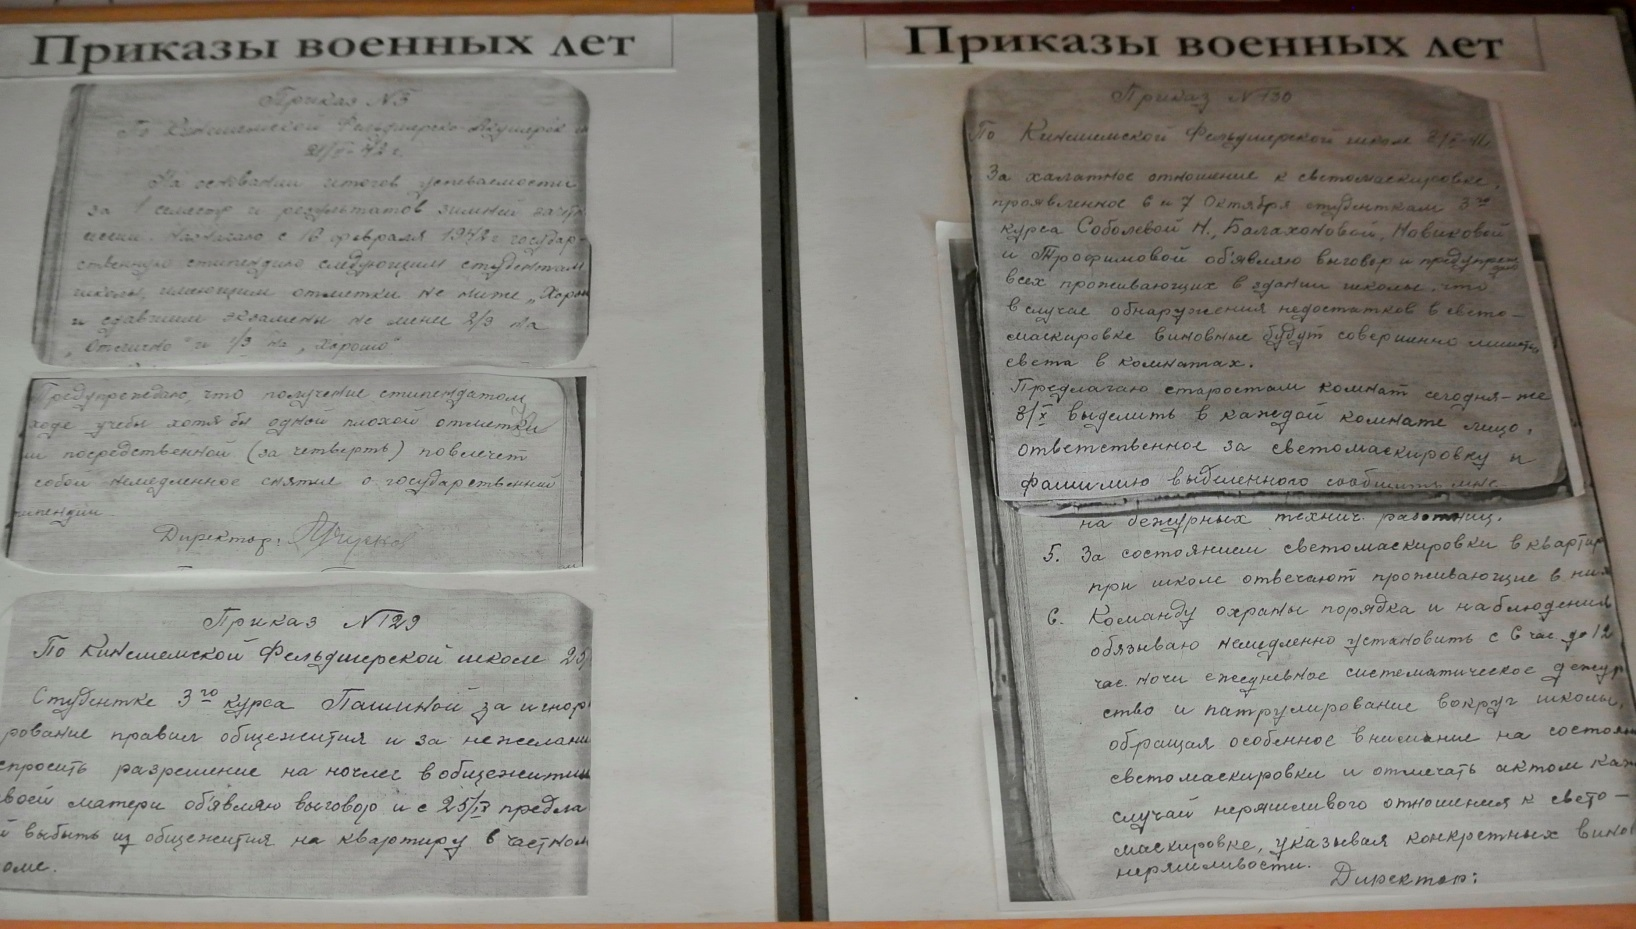 Приказы военных лет
Приказ №5
По Кинешемской Фельдшерско-Акушерск.
42 г.
На основании итогов успеваемости
за 1 семестр и результатов зимней
назначаю с 16 февраля 1942 г государ-
ственную стипендию следующим студентам
школы, имеющим отметки не ниже „Хорош
и сдавшим экзамены не мене 2/3 на
„Отлично" и 1/3 на „хорошо"
Предупреждаю, что получение стипендиатом
ходе учебы хотя бы одной плохой отметки
посредственной (за четверть) повлечет
собой немедленное снятие с государственной
ипендии.
Директор:
Приказ №129
По Кинешемской Фельдшерской школе 25/
Студентке 3го курса Пашиной за игнор
рование правил общежития и за нежелани
спросить разрешение на ночлег в общежитии
воей матери об'являю выговор и с 25/IX предла
й выбыть из общежития на квартиру в частном
оме.
Приказы военных лет
Приказ №130
По Кинешемской Фельдшерской школе 8/X-42
За халатное отношение к светомаскировке,
проявленное 6 и 7 Октября студенткам 3го
курса Соболевой Н., Балахоновой, Новиковой
и Трофимовой об'являю выговор и предупреж
всех проживающих в здании школы, что
в случае обнаружения недостатков в свето-
маскировке виновные будут совершенно лишать
света в комнатах.
Предлагаю старостам комнат сегодня-же
8/X выделить в каждой комнате лицо,
ответственное за светомаскировку и
фамилию выделенного сообщить мне
на дежурных технич. работниц.
5. За состоянием светомаскировки в квартир
при школе отвечают проживающие в них
6. Команду охраны порядка и наблюдения
обязываю немедленно установить с 6 час. до 12
час. ночи ежедневное систематическое дежур
ство и патрулирование вокруг школы,
обращая особенное внимание на состоян
светомаскировки и отмечать актом каж
случай неряшливого отношения к свето-
маскировке, указывая конкретных вино
неряшливости.
Директор: